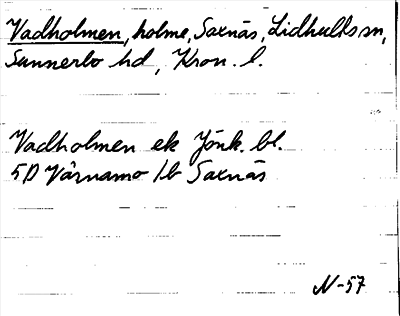 Vadholmen, holme, Saxnäs, Lidhults sn,
Sunnerbo hd, Kron. l.
Vadholmen ek Jönk. bl.
5D Värnamo lb Saxnäs
N-57